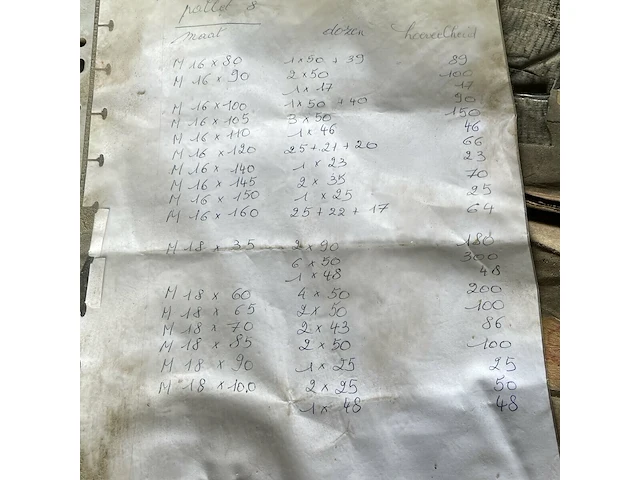 pallet 8
maat dozen hoeveelheid
M 16 x 80 1 x 50 + 39 89
M 16 x 90 2 x 50 100
1 x 17 17
M 16 x 100 1 x 50 + 40 90
M 16 x 105 3 x 50 150
M 16 x 110 1 x 46 46
M 16 x 120 25 + 21 + 20 66
M 16 x 140 1 x 23 23
M 16 x 145 2 x 35 70
M 16 x 150 1 x 25 25
M 16 x 160 25 + 22 + 17 64
M 18 x 35 2 x 90 180
6 x 50 300
1 x 48 48
M 18 x 60 4 x 50 200
M 18 x 65 2 x 50 100
M 18 x 70 2 x 43 86
M 18 x 85 2 x 50 100
M 18 x 90 1 x 25 25
M 18 x 100 2 x 25 50
1 x 48 48